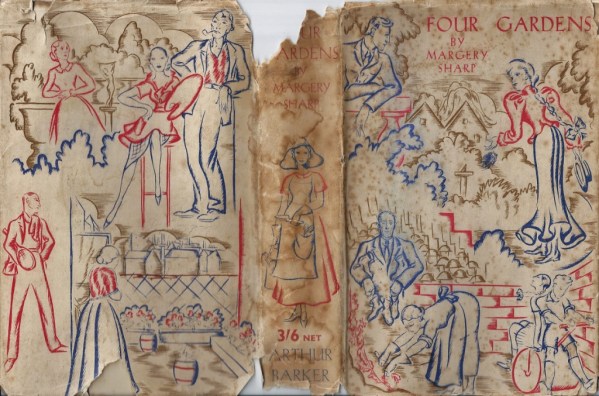 UR
ARDENS
MARGERY
SHARP
3/6 NET
ARTHUR
BARKER
FOUR GARDENS
BY
MARGERY
SHARP